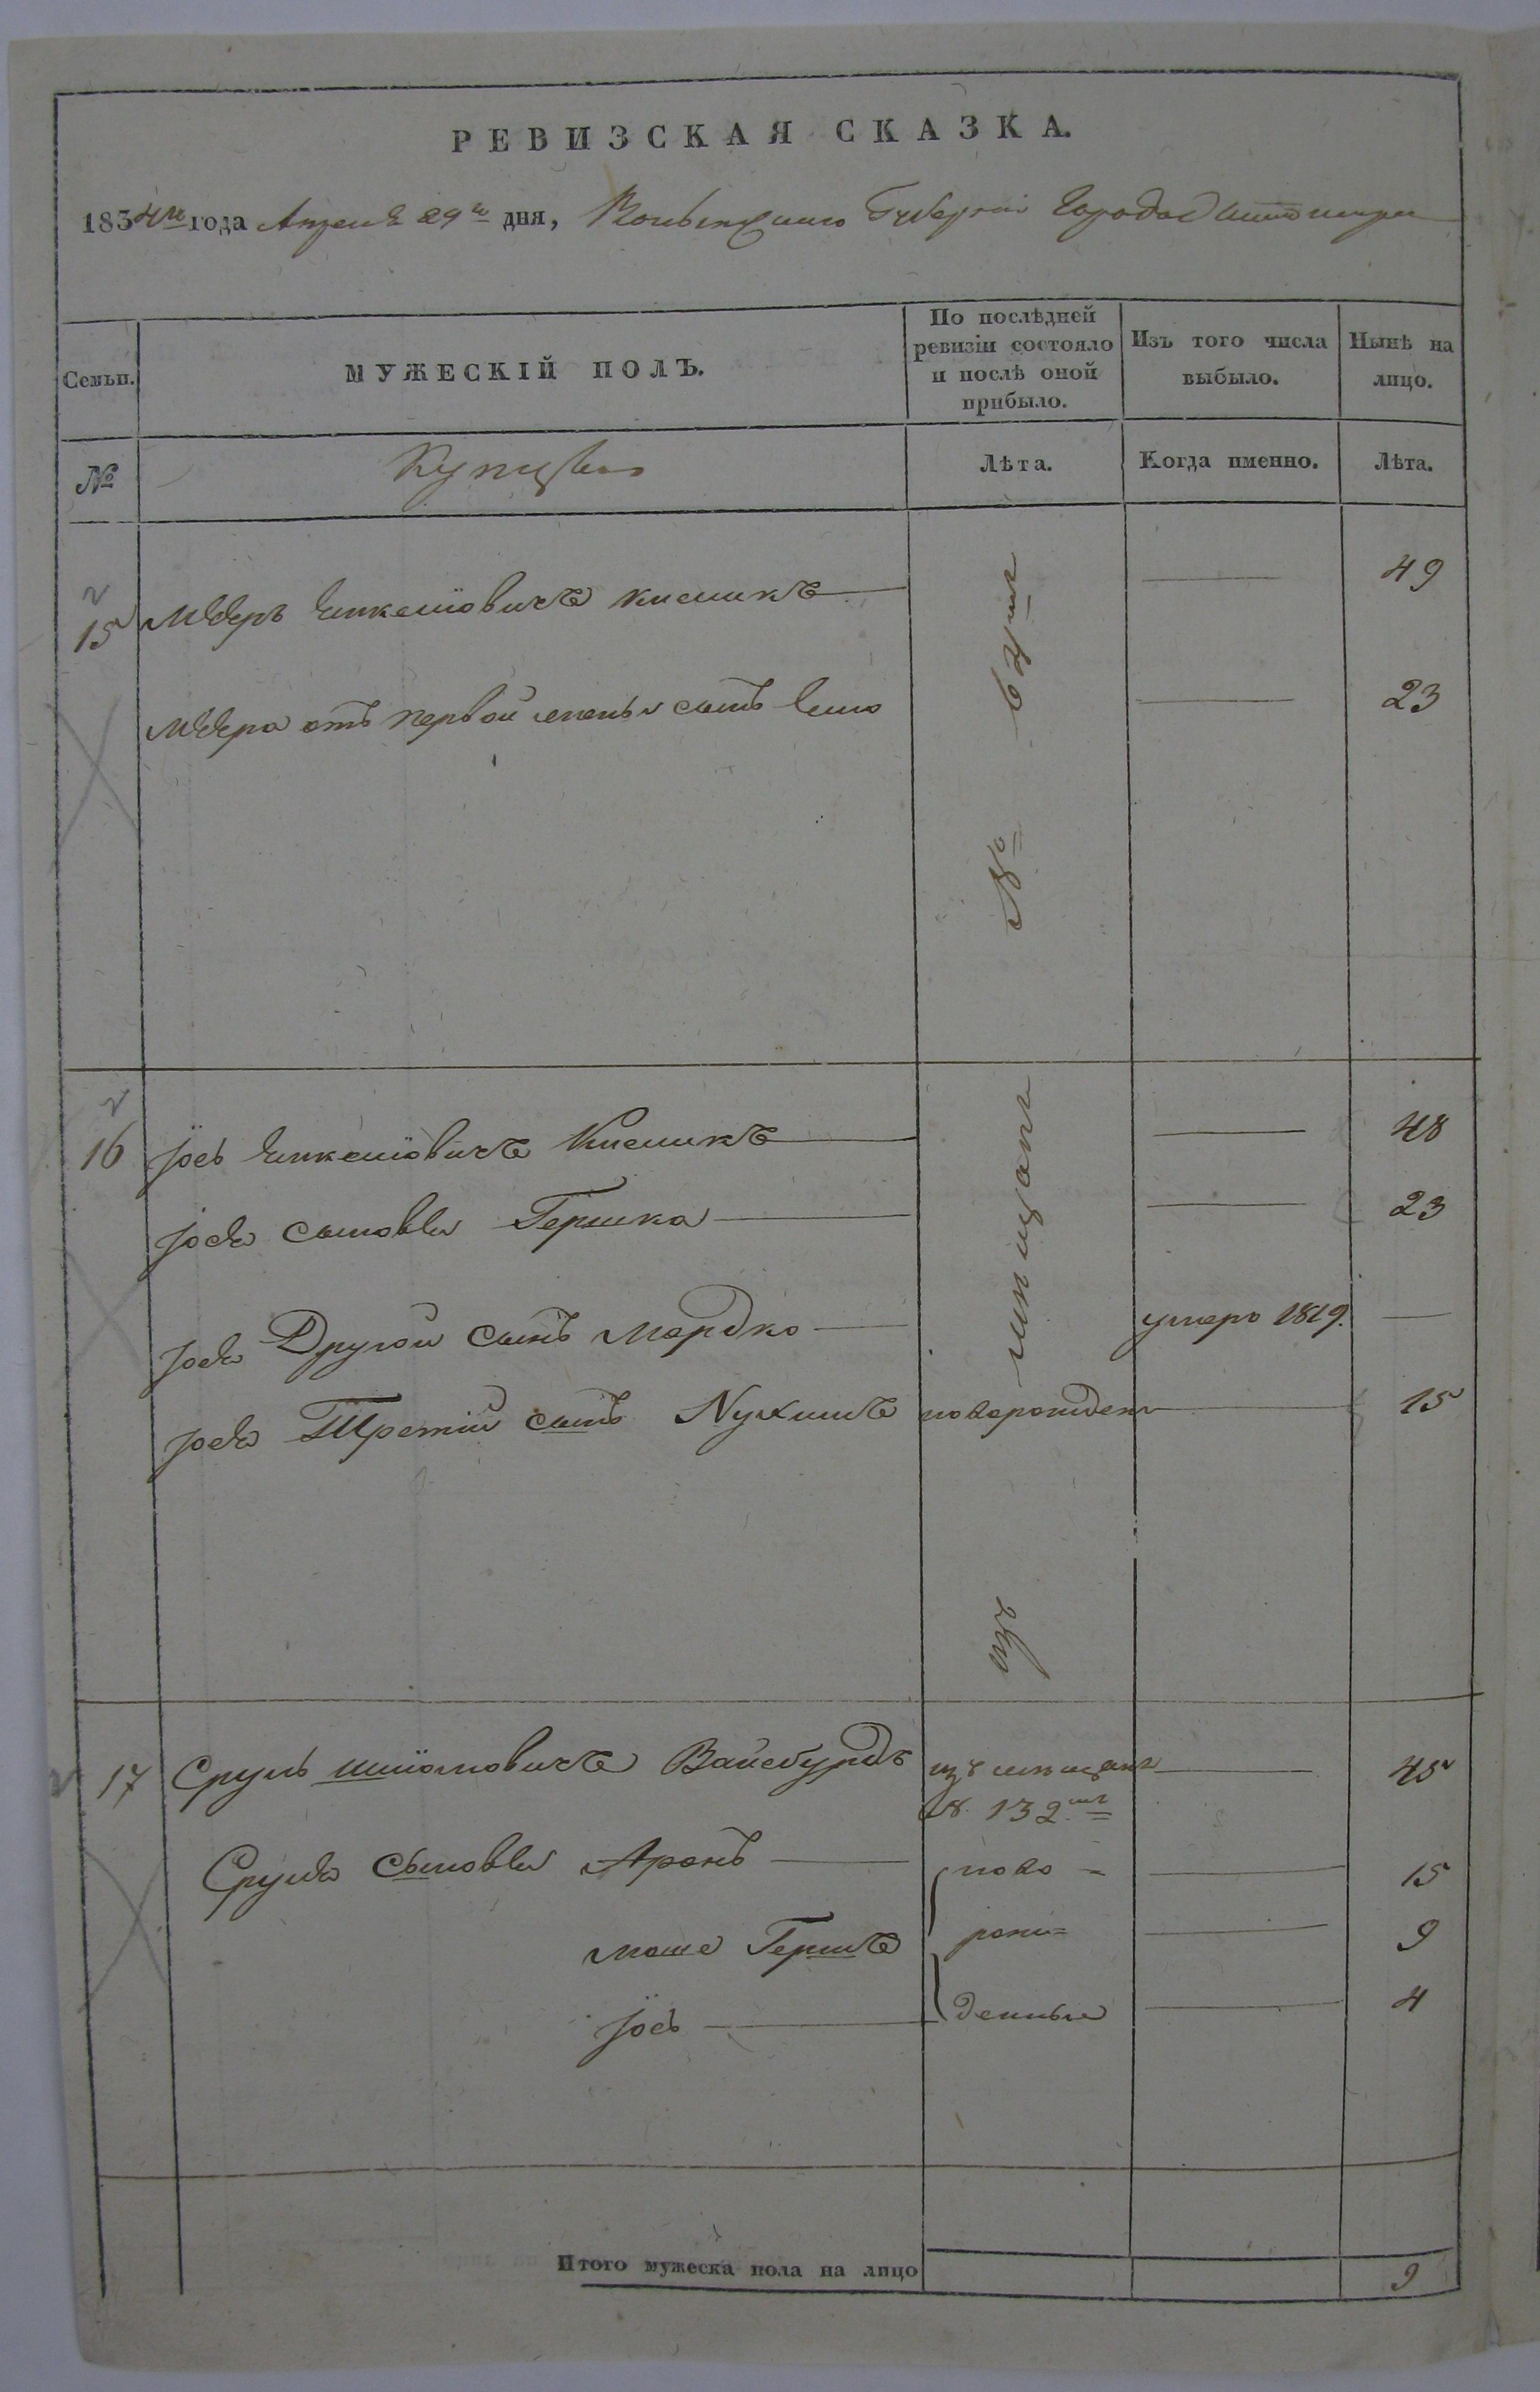 РЕВИЗСКАЯ СКАЗКА.
1834го года Апреля 29го дня, Волынской Губернии Города Житомира
Семьи.
МУЖЕСКІЙ ПОЛЪ.
По послѣдней
ревизіи состояло
и послѣ оной
прибыло.
Изъ того числа
выбыло.
Нынѣ на
лицо.
№
Купцы
Лѣта.
Когда именно.
Лѣта.
15 Мееръ кисликъ 49
Меера отъ первой жены сынъ 23
№
16 Іось Кисликъ 48
Іося сыновья Гершко 23
Іося Другой сынъ Мордко умеръ 1819.
Іося Третій сынъ Нухимъ новорожден 15
изъ мещанъ
17 Сруль Шліомовичъ Вайсбурдъ изъ мещанъ 45
№ 132
Сруля сыновья Аронъ ново- 15
Моше Гершъ рож= 9
Іось денные 4
Итого мужеска пола на лицо 9